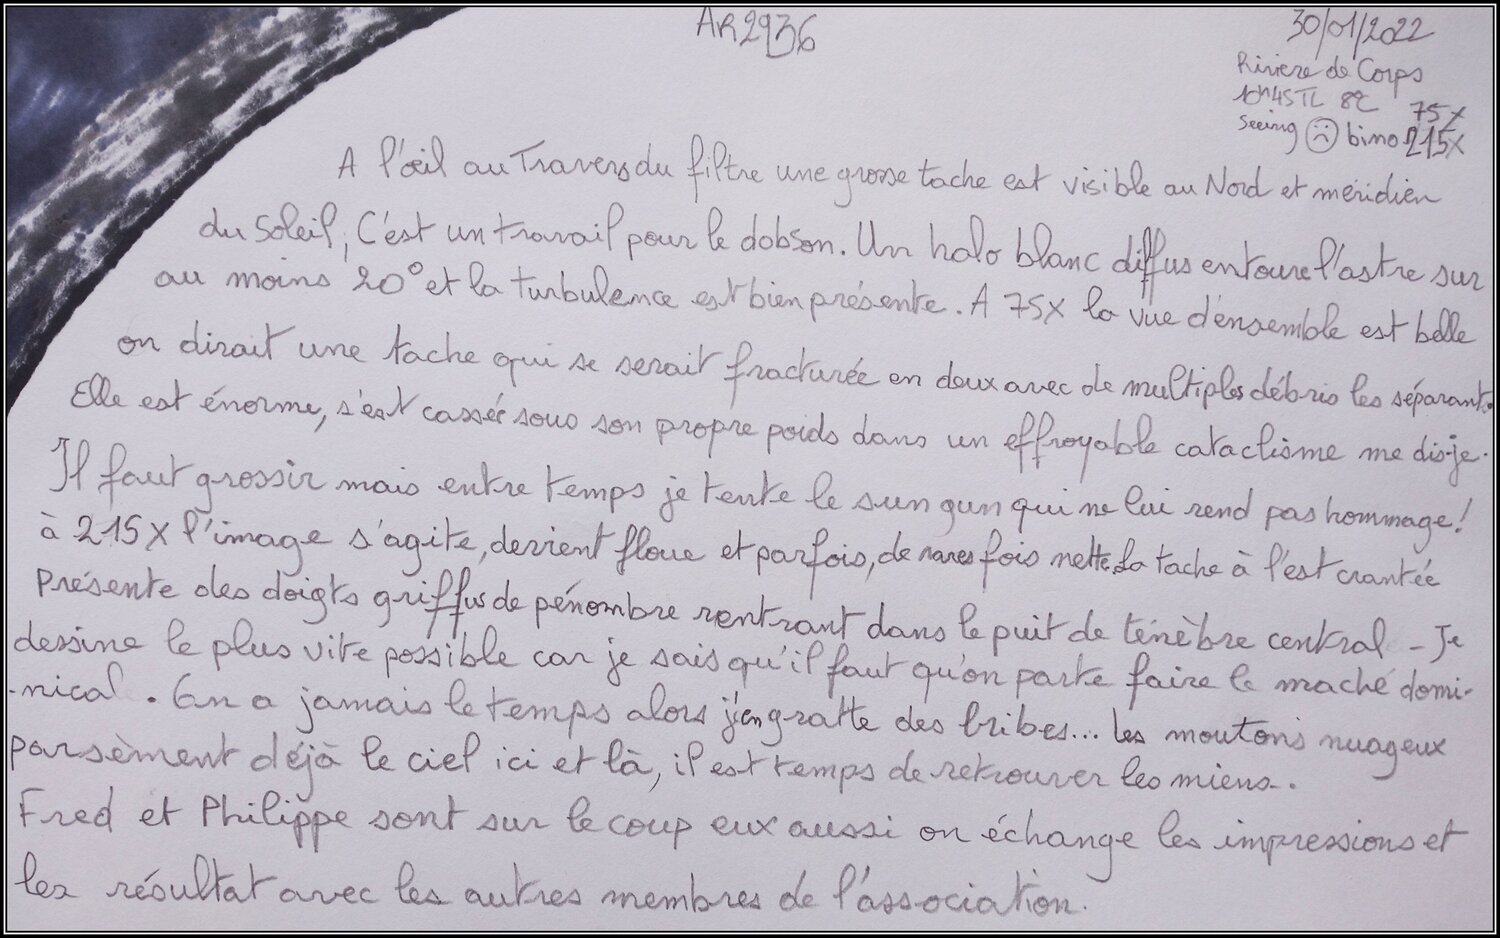 AR2936
30/01/2022
Riviere de Corps
10h45TL 8°C 75X
Seeing ☹ bino 215X
A l'œil au Travers du filtre une grosse tache est visible au Nord et méridien
du Soleil, C'est un travail pour le dobson. Un halo blanc diffus entoure l'astre sur
au moins 20° et la turbulence est bien présente. A 75X la vue d'ensemble est belle
on dirait une tache qui se serait fracturée en deux avec de multiples débris les séparant.
Elle est énorme, s'est cassée sous son propre poids dans un effroyable cataclisme me dis-je.
Il faut grossir mais entre temps je tente le sun gun qui ne lui rend pas hommage!
à 215X l'image s'agite, devient floue et parfois, de rares fois nette. La tache à l'est crantée
Présente des doigts griffus de pénombre rentrant dans le puit de ténèbre central - Je
dessine le plus vite possible car je sais qu'il faut qu'on parte faire le maché domi-
-nical. On a jamais le temps alors j'en gratte des bribes... Les moutons nuageux
parsèment déjà le ciel ici et là, il est temps de retrouver les miens..
Fred et Philippe sont sur le coup eux aussi on échange les impressions et
les résultat avec les autres membres de l'association.